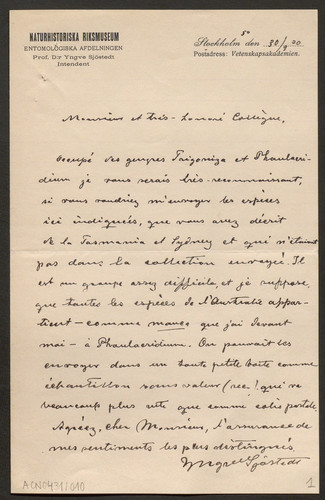 NATURHISTORISKA RIKSMUSEUM
ENTOMOLOGISKA AFDELNINGEN
Prof. D:r Yngve Sjöstedt
Intendent
Stockholm den 30/9 20
Postadress: Vetenskapsakademien.
Monsieur et très-honoré Collègue,
Occupé des genres Trigoniza et Phaulacri-
dium je vous serais très-reconnaissant,
si vous voudriez m'envoyer les espèces
ici indiquées, que vous avez décrit
de la Tasmania et Sydney et qui n'étaient
pas dans la collection envoyée. Il
est un groupe assez difficile, et je suppose,
que toutes les espèces de l'Australie appar-
tient - comme mance que j'ai devant
moi - à Phaulacridium. On pourrait les
envoyer dans un toute petite boîte comme
échantillon sans valeur (rec.) qui va
beaucoup plus vite que comme colis postale.
Agréez, cher Monsieur, l'assurance de
mes sentiments les plus distingués
Yngve Sjöstedt
ACN0431/010
1